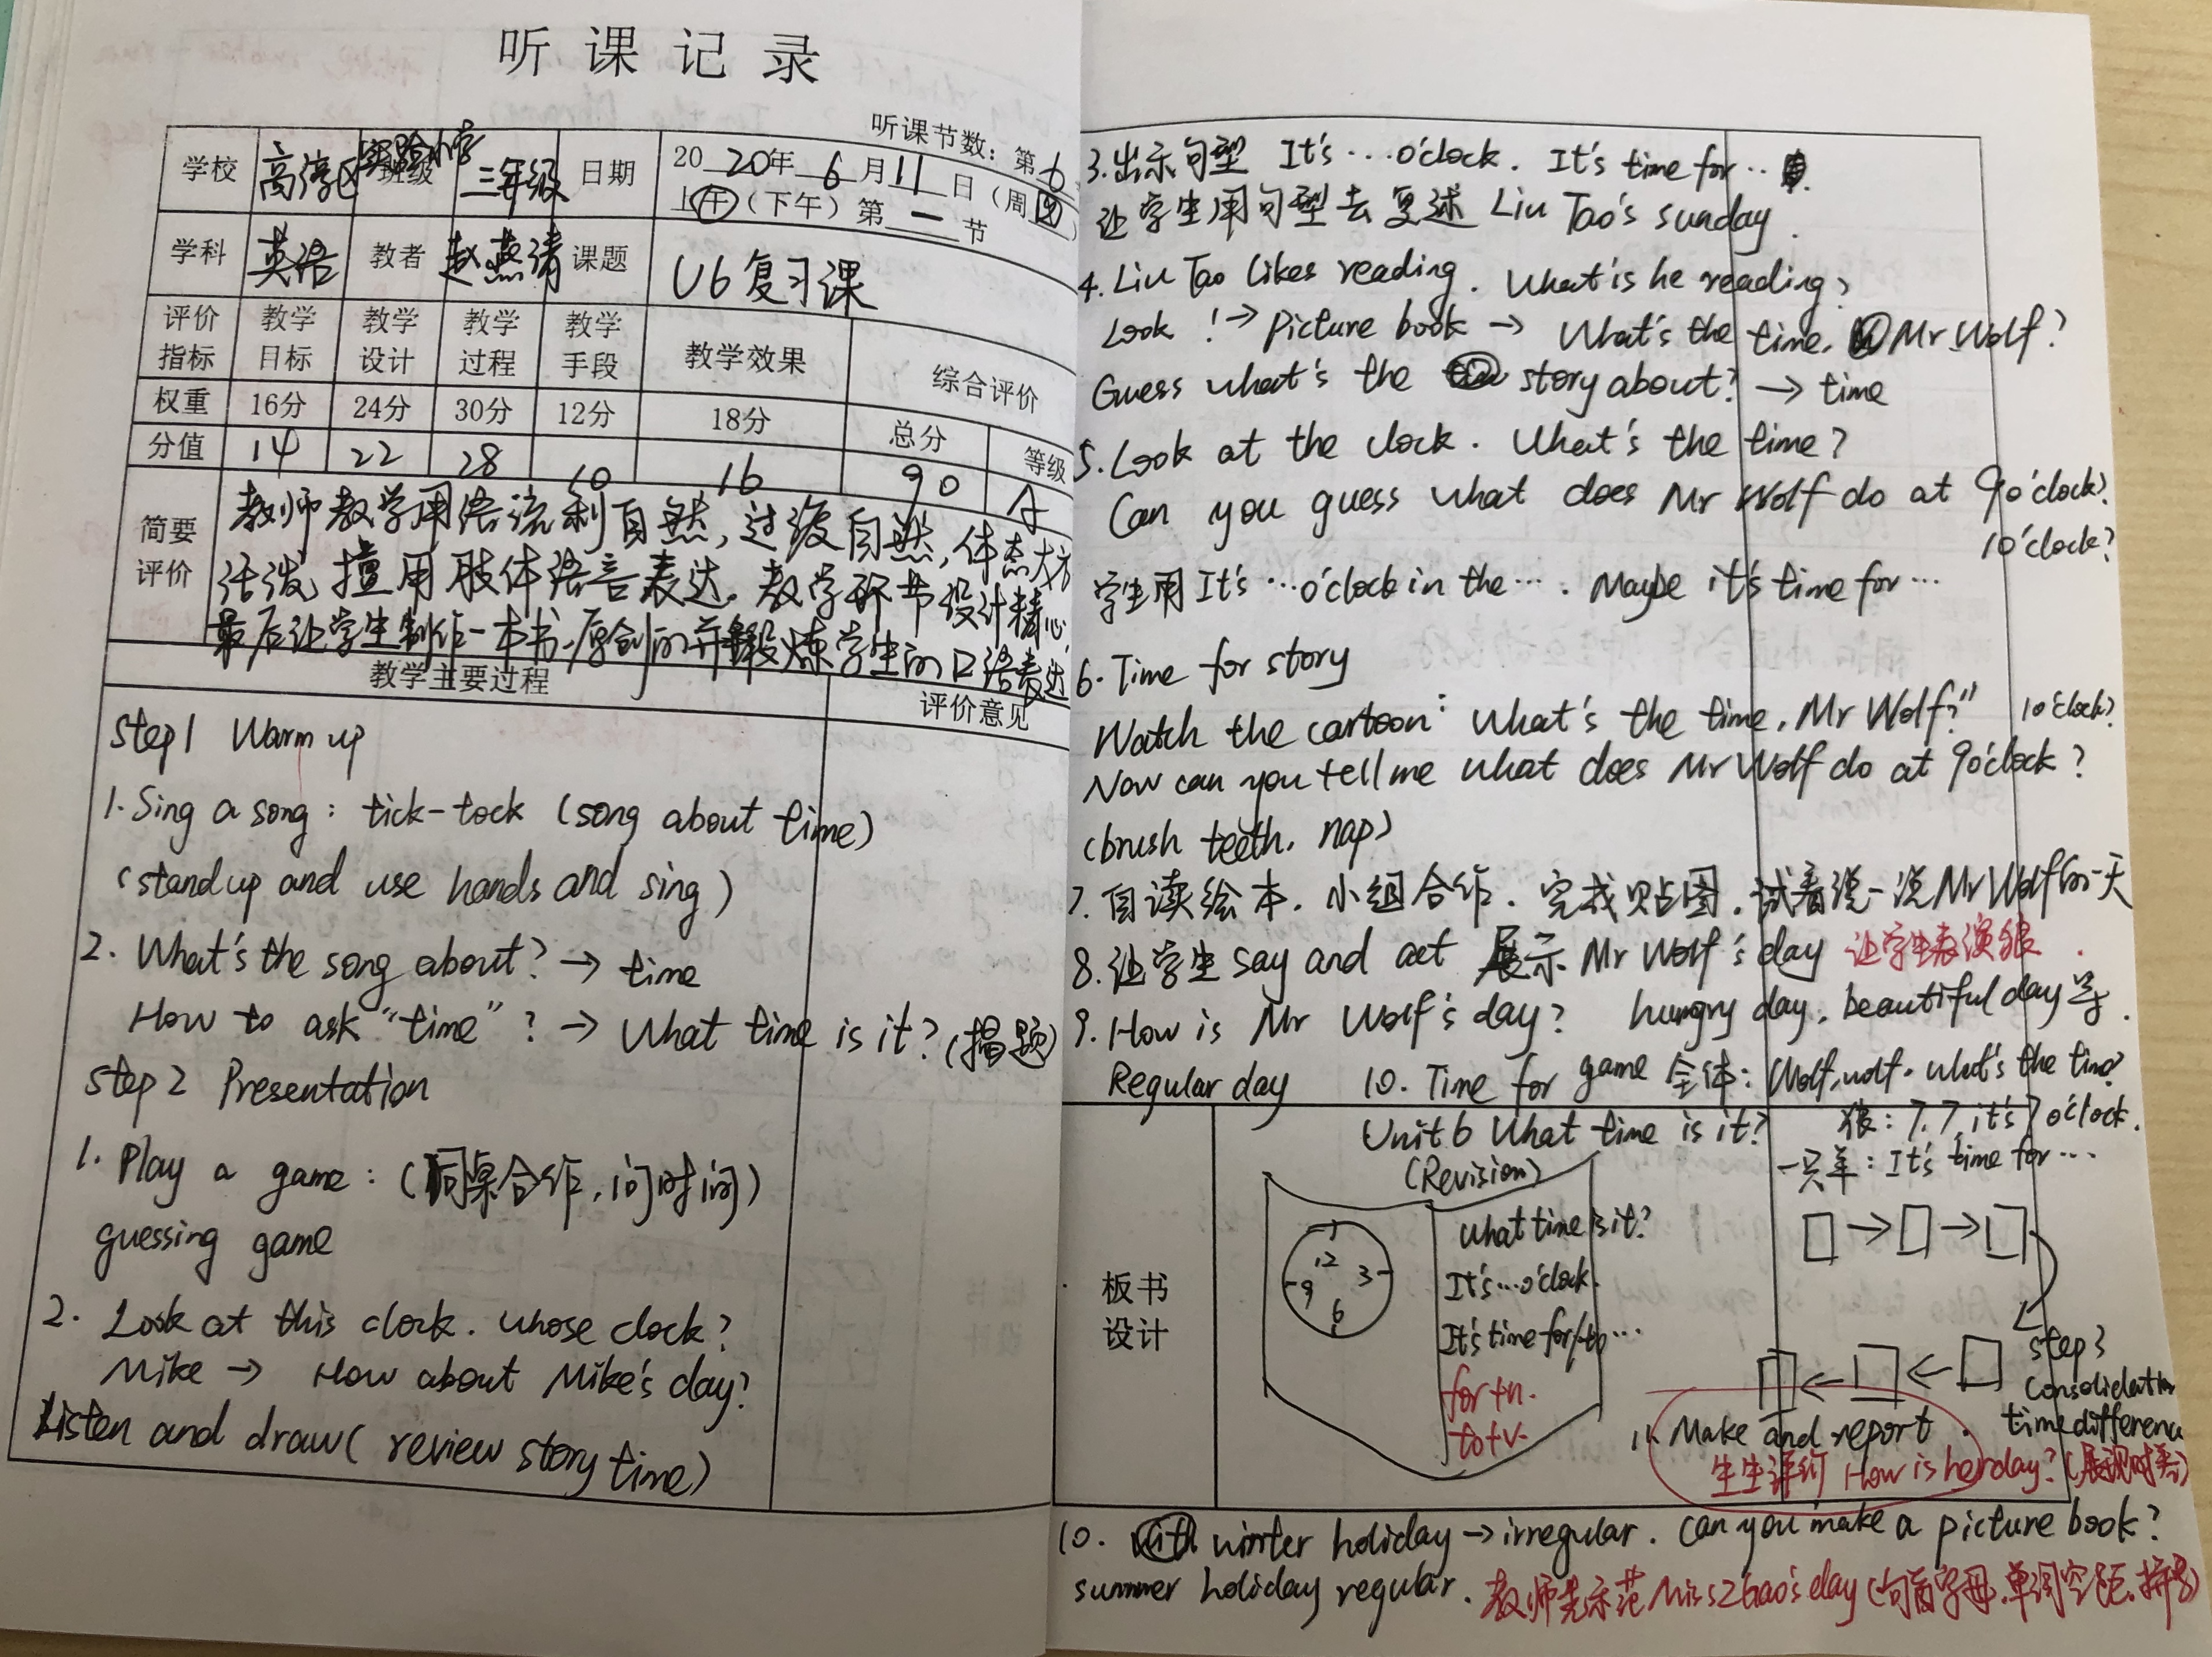 听课记录
听课节数：第6
学校 高淳区实验小学 班级 三年级 日期 2020年6月11日（周四）
上午（下午）第一节
学科 英语 教者 赵燕清 课题 U6复习课
评价指标 教学目标 教学设计 教学过程 教学手段 教学效果 综合评价
权重 16分 24分 30分 12分 18分 总分 等级
分值 14 22 28 10 16 90 A
简要评价
教师教学用语流利自然，过渡自然，体态大方
活泼，擅用肢体语言表达。教学环节设计精心
最后让学生制作一本书，原创的并锻炼学生的口语表达
教学主要过程 评价意见
Step1 Warm up
1. Sing a song: tick-tock (song about time)
(stand up and use hands and sing)
2. What's the song about? → time
How to ask "time"? → What time is it? (揭题)
Step2 Presentation
1. Play a game: (同桌合作，问时间)
guessing game
2. Look at this clock. Whose clock?
Mike → How about Mike's day?
Listen and draw (review story time)
3. 出示句型 It's … o'clock. It's time for …
让学生用句型去复述 Liu Tao's sunday.
4. Liu Tao likes reading. What is he reading?
Look! → Picture book → What's the time, Mr Wolf?
Guess what's the story about? → time
5. Look at the clock. What's the time?
Can you guess what does Mr Wolf do at 9o'clock?
10'clock?
学生用 It's … o'clock in the …. Maybe it's time for …
6. Time for story
Watch the cartoon: What's the time, Mr Wolf?"
10'clock?
Now can you tell me what does Mr Wolf do at 9o'clock?
(brush teeth, nap)
7. 自读绘本，小组合作，完成贴图，试着说一说Mr Wolf的一天
8. 让学生 say and act 展示 Mr Wolf's day 让学生表演狼.
9. How is Mr Wolf's day? hungry day, beautiful day 等.
Regular day 10. Time for game 全体: Wolf, wolf, what's the time?
狼: 7, 7, it's 7 o'clock.
一只羊: It's time for …
板书设计
Unit 6 What time is it?
(Revision)
12
9 3
6
What time is it?
It's … o'clock.
It's time for/to …
for+n.
to+v.
Step 3
Consolidation
time difference
11. Make and report.
生生评价 How is her day? (展现时差)
10. winter holiday → irregular. Can you make a picture book?
summer holiday regular. 教师先示范 Miss Zhao's day (句首字母，单词空距，拼写)